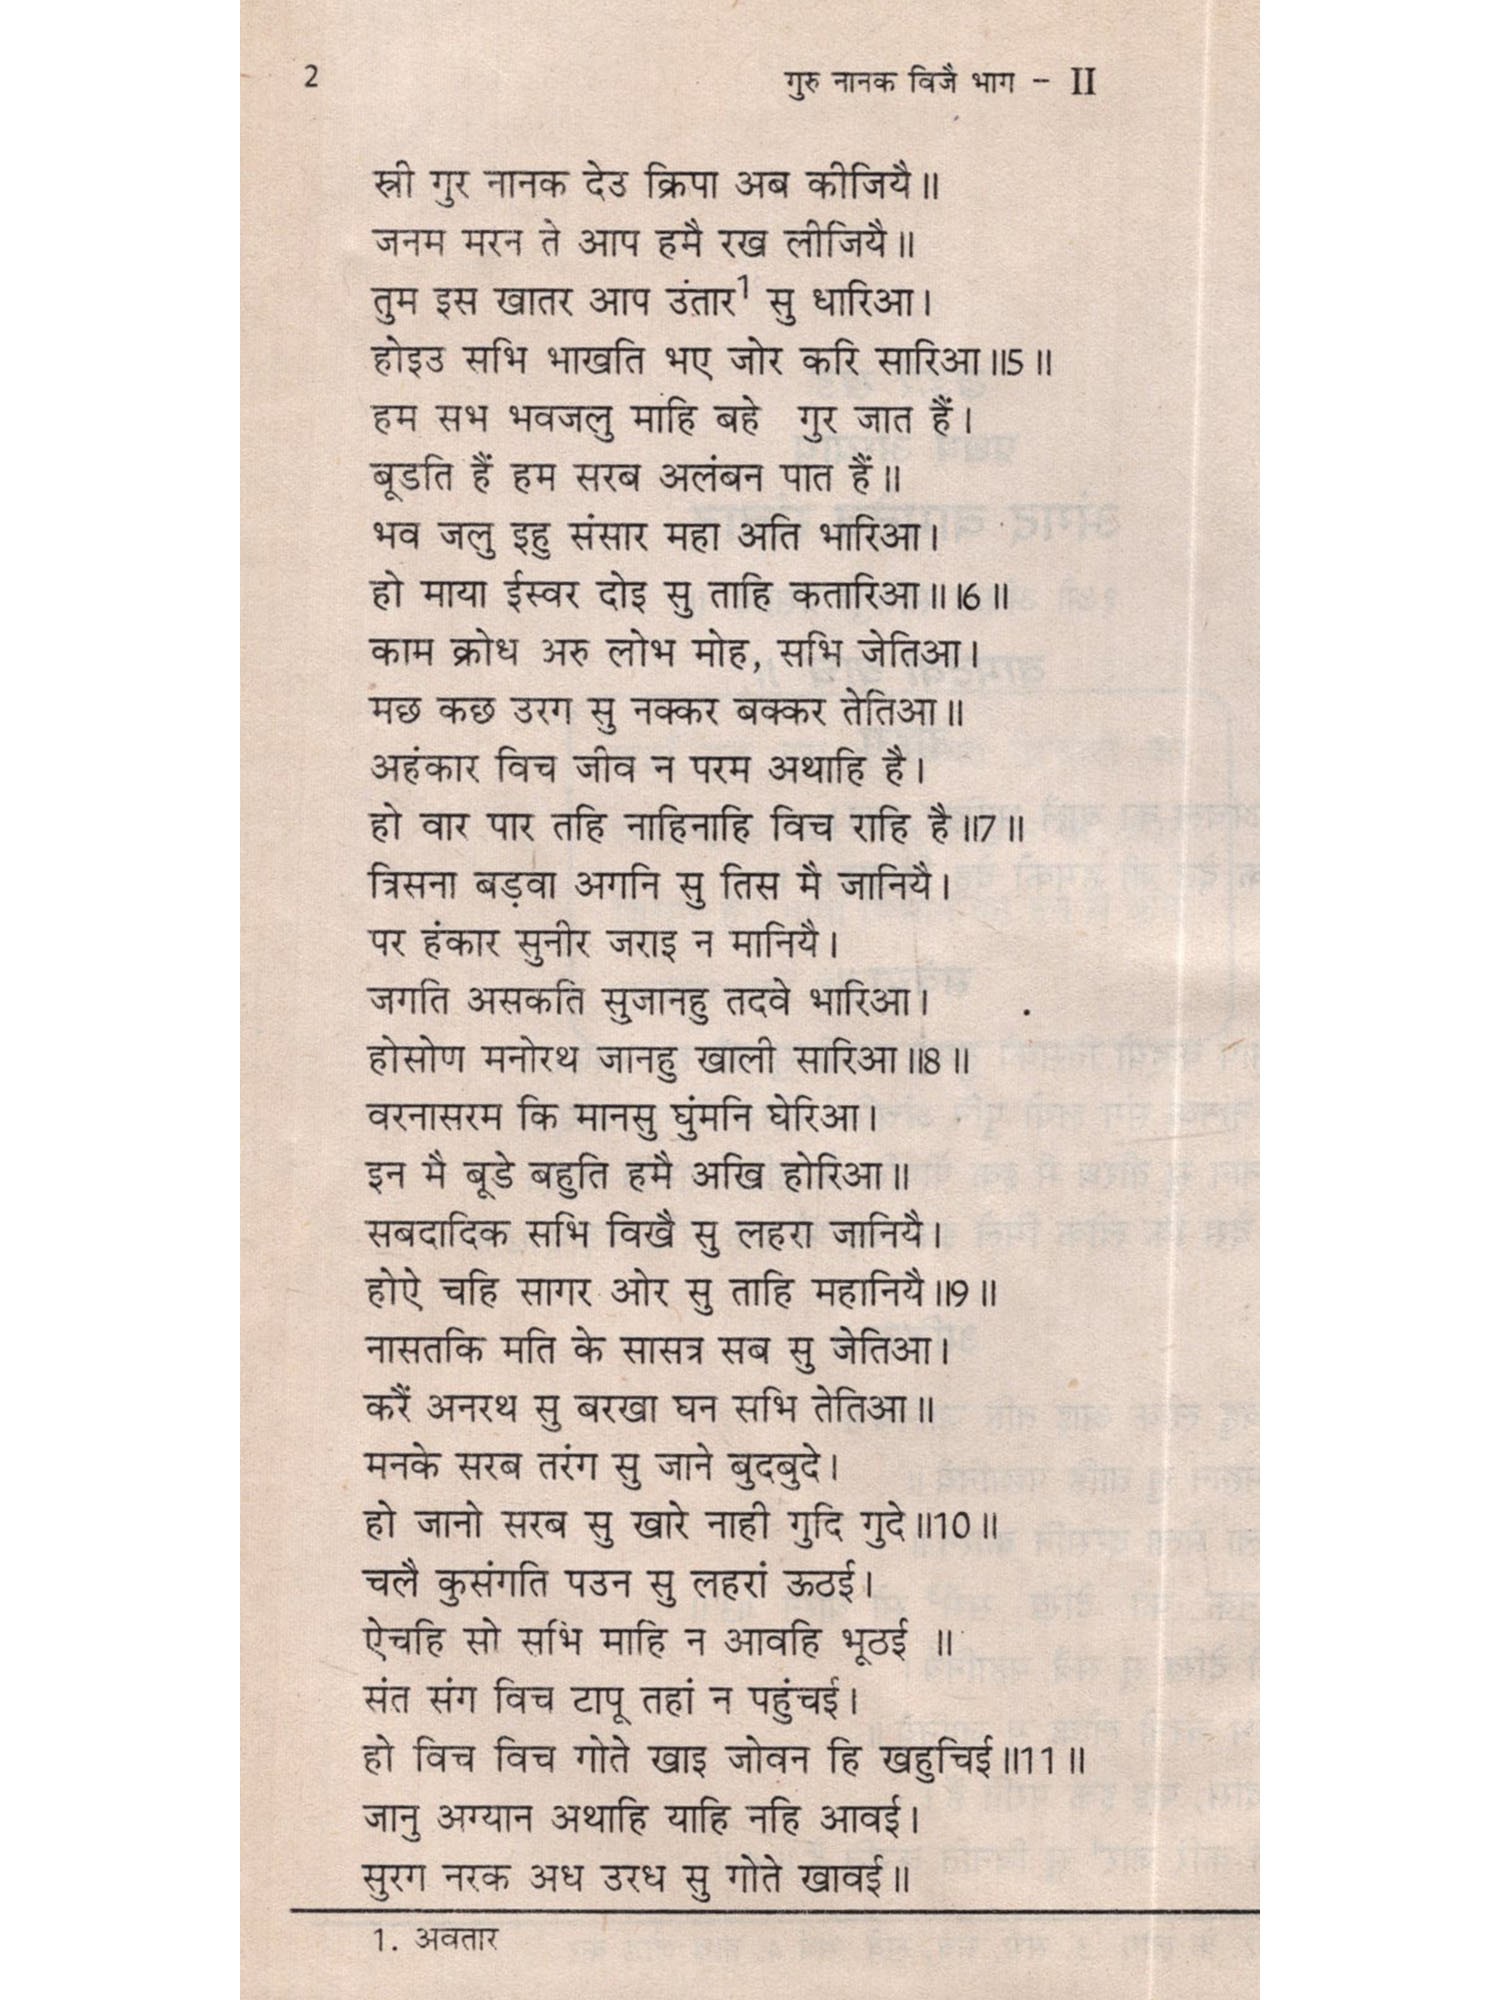 2
गुरु नानक विजै भाग – II
स्री गुर नानक देउ क्रिपा अब कीजियै॥
जनम मरन ते आप हमै रख लीजियै॥
तुम इस खातर आप उंतार¹ सु धारिआ।
होइउ सभि भाखति भए जोर करि सारिआ॥5॥
हम सभ भवजलु माहि बहे गुर जात हैं।
बूडति हैं हम सरब अलंबन पात हैं॥
भव जलु इहु संसार महा अति भारिआ।
हो माया ईस्वर दोइ सु ताहि कतारिआ॥।6॥
काम क्रोध अरु लोभ मोह, सभि जेतिआ।
मछ कछ उरग सु नक्कर बक्कर तेतिआ॥
अहंकार विच जीव न परम अथाहि है।
हो वार पार तहि नाहिनाहि विच राहि है॥7॥
त्रिसना बड़वा अगनि सु तिस मै जानियै।
पर हंकार सुनीर जराइ न मानियै।
जगति असकति सुजानहु तदवे भारिआ।
होसोण मनोरथ जानहु खाली सारिआ॥8॥
वरनासरम कि मानसु घुंमनि घेरिआ।
इन मै बूडे बहुति हमै अखि होरिआ॥
सबदादिक सभि विखै सु लहरा जानियै।
होऐ चहि सागर ओर सु ताहि महानियै॥9॥
नासतकि मति के सासत्र सब सु जेतिआ।
करैं अनरथ सु बरखा घन सभि तेतिआ॥
मनके सरब तरंग सु जाने बुदबुदे।
हो जानो सरब सु खारे नाही गुदि गुदे॥10॥
चलै कुसंगति पउन सु लहरां ऊठई।
ऐचहि सो सभि माहि न आवहि भूठई ॥
संत संग विच टापू तहां न पहुंचई।
हो विच विच गोते खाइ जोवन हि खहुचिई॥11॥
जानु अग्यान अथाहि याहि नहि आवई।
सुरग नरक अध उरध सु गोते खावई॥
1. अवतार